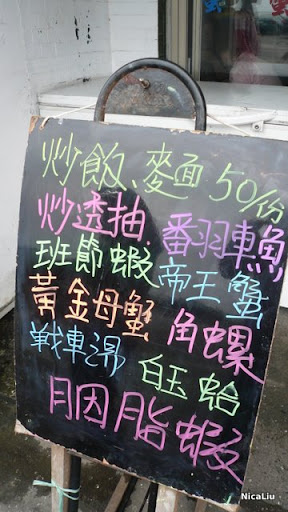 炒飯、麥面50份
炒透抽
番羽車魚
班節蝦
帝王蟹
黃金母蟹
角螺
戰車湯
白玉蛤
胭脂蝦
NicaLiu